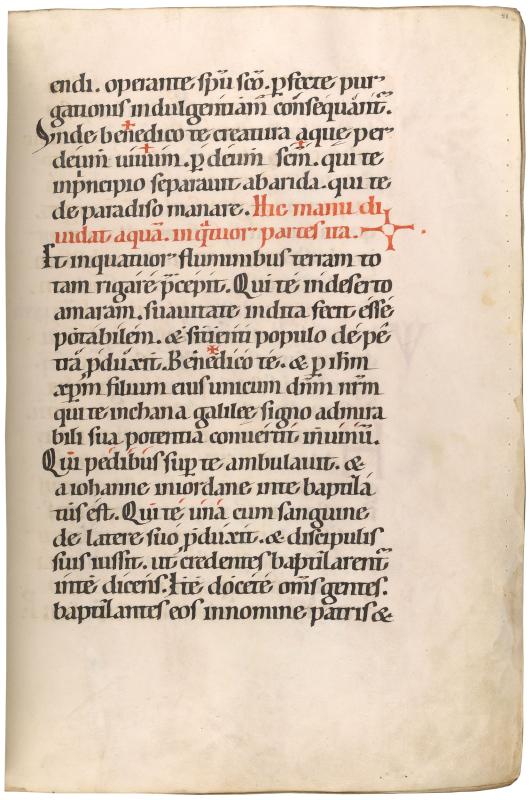 endi. operante sp̄u sc̄o. p̱fecte pur
gationis indulgentiam̄ consequant᷑.
Vnde ben✝edico te creatura aque per
deum ui✝uum. p̱ deum sc̄✝m. qui te
inp͛ncipio separauit abarida. qui te
de paradiso manare. Hic manu di
uidat aquā. in q͛tuor partes ita.
Et inquatuor fluminibus terram to
tam rigare p͛cepit. Qui te indeserto
amaram. suauitate indita fecit esse
potabilem. & sitienti populo de pe
tra p̱duxit. Bene✝dico te. & p̱ ih̄m
xp̄m filium eius unicum dn̄m nr̄m
qui te inchana galilee signo admira
bili sua potentia conuertit inuinū.
Qui pedibus sup̱ te ambulauit. &
a iohanne iniordane inte baptiza
tus est. Qui te una cum sanguine
de latere suo p̱duxit. & discipulis
suis iussit. ut credentes baptizarent᷑
inte dicens. Ite docete om̄s gentes.
baptizantes eos innomine patris &